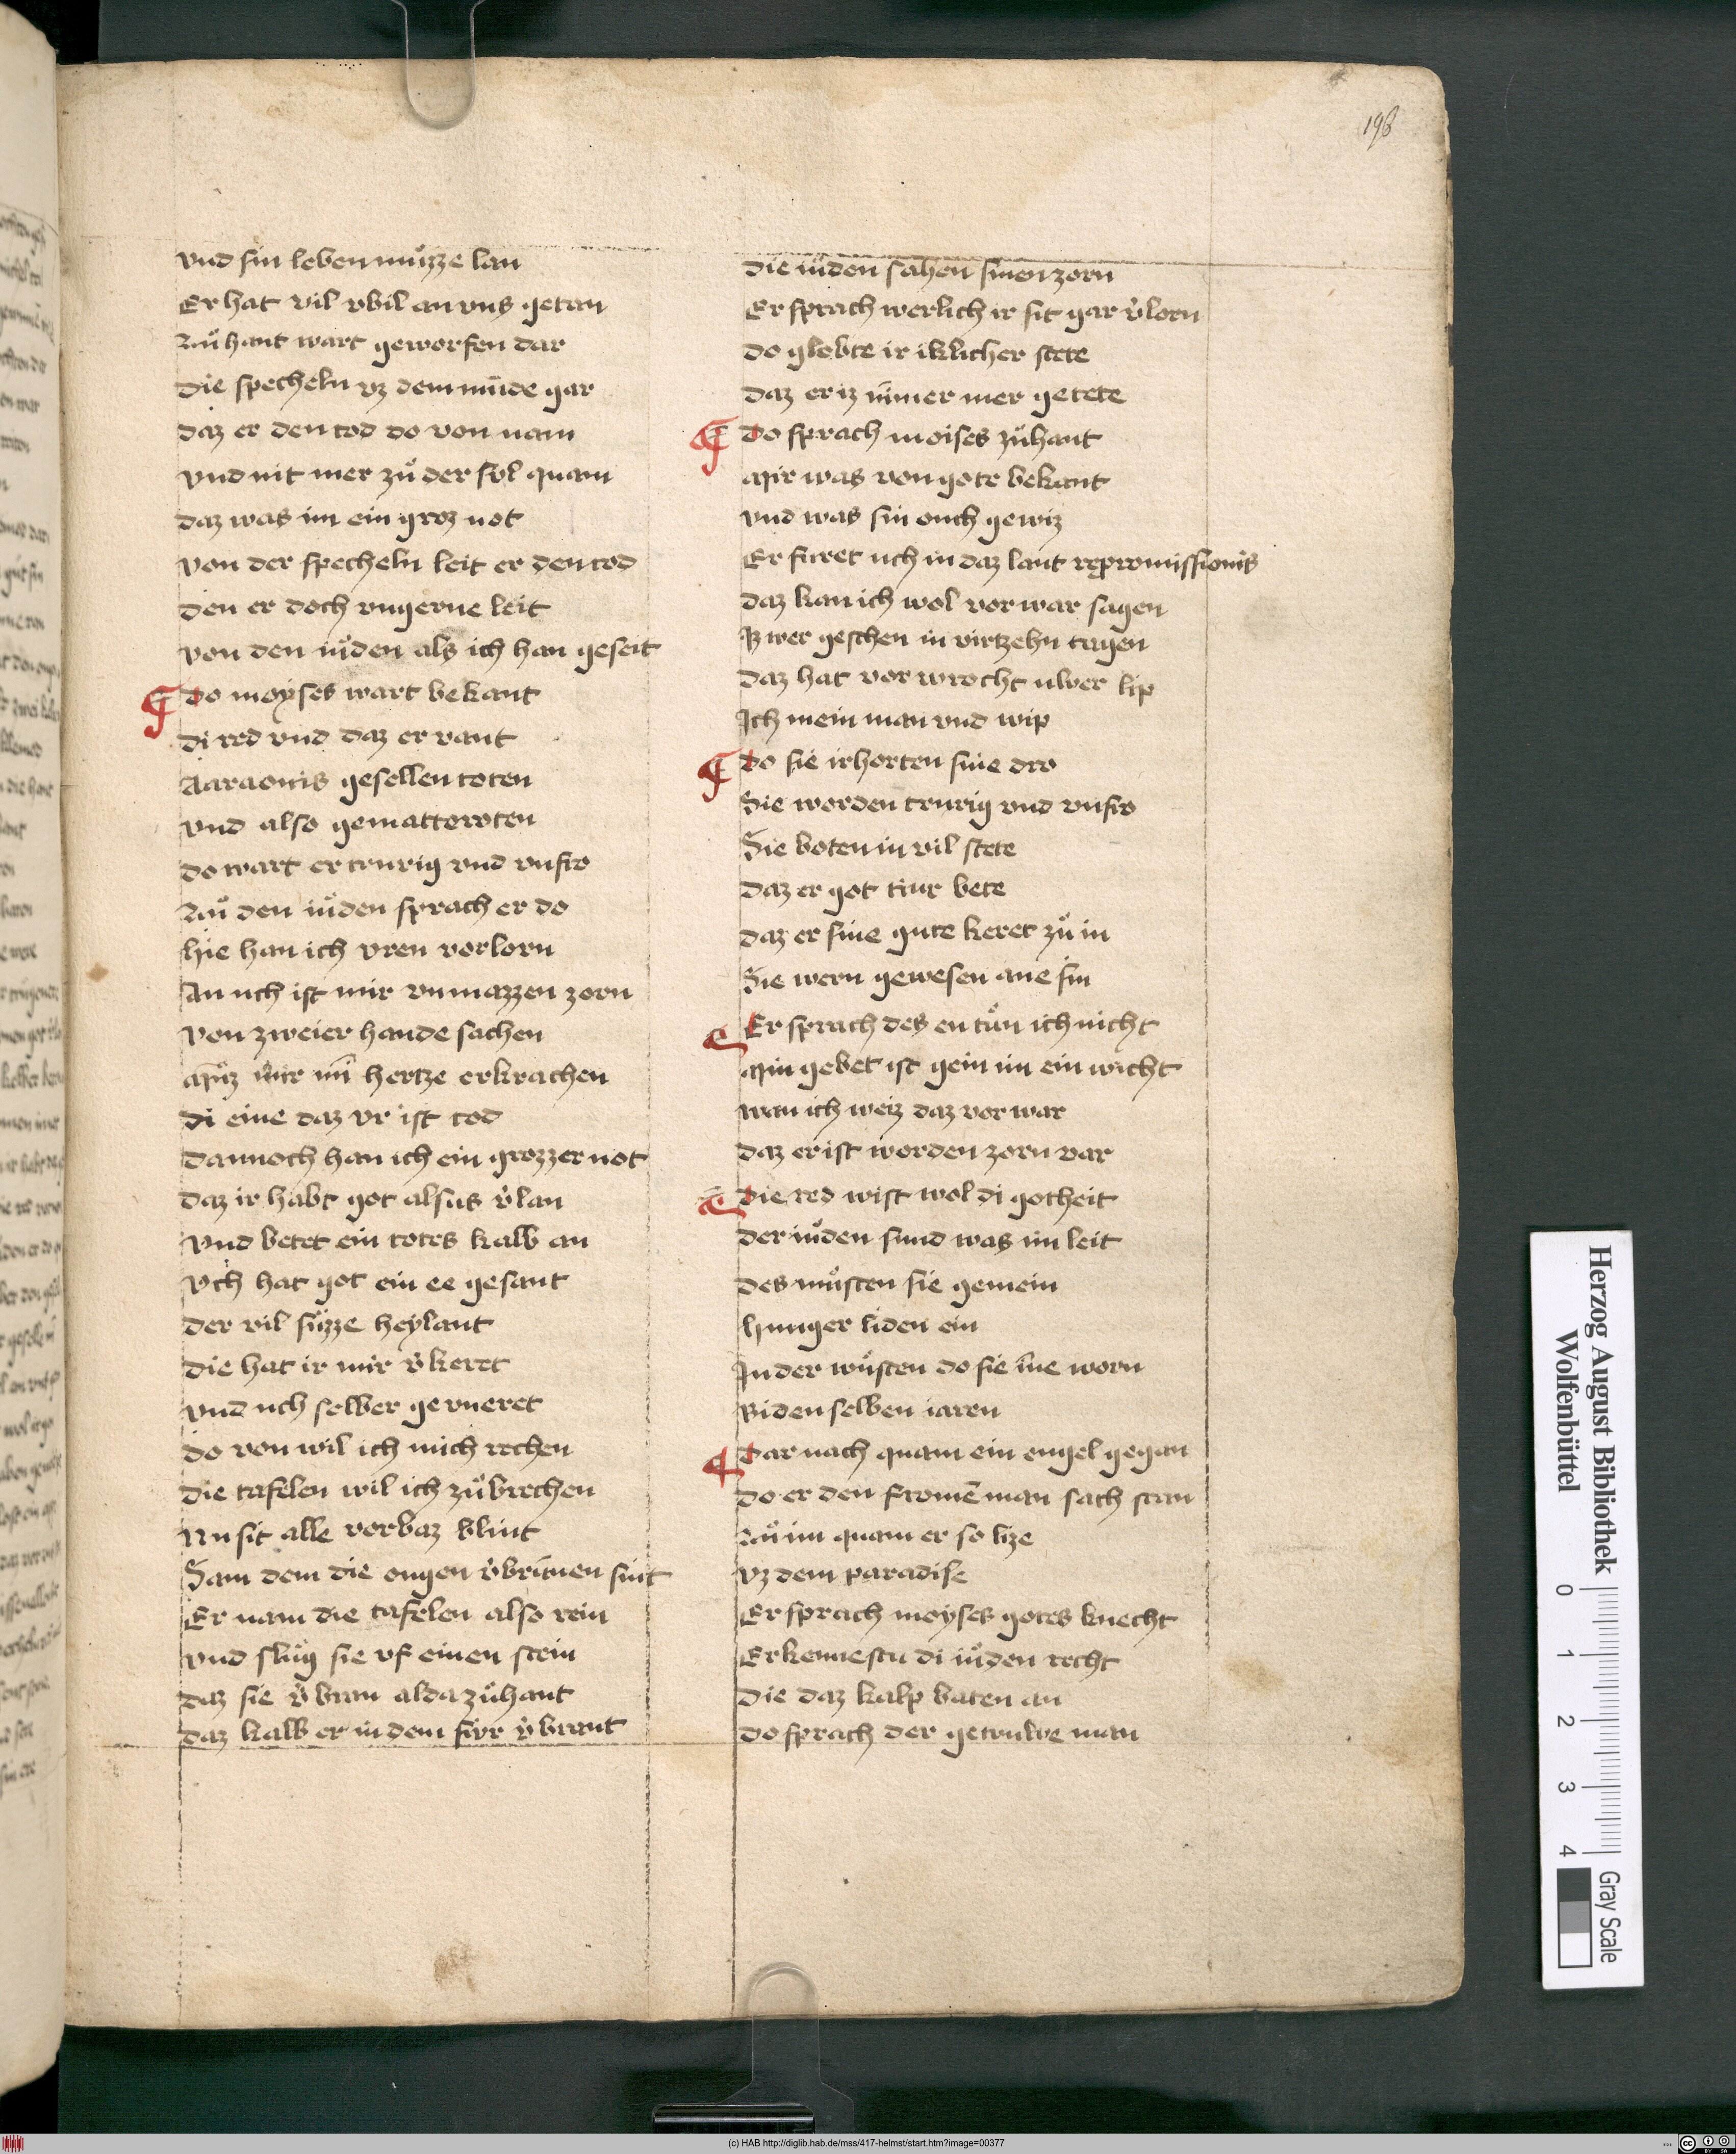 198
vnd sin leben muͦzze lan
Er hat vil vbil an vns getan
Zuͦ hant wart geworfen dar
Die specheln vz dem mūde gar
Daz er den tod do von nam
Vnd nit mer zuͦ der sol quam
Daz was im ein groz not
Von der specheln leit er den tod
Den er doch vngerne leit
Von den iuͦden als ich han geseit
¶ Do moyses wart bekant
Di red vnd daz er vant
Aaraonis gesellen toten
Vnd also gematteroten
Do wart er trurig vnd vnfro
Zuͦ den iuͦden sprach er do
Hie han ich vren vorlorn
An uch ist mir vnmazzen zorn
Von zweier hande sachen
Muͦz mir min hertze erkrachen
Di eine daz vr ist tod
Dannoch han ich ein grozzer not
Daz ir habt got alsus v͛lan
Vnd betet ein totes kalb an
Vch hat got ein ee gesant
Der vil suͦzze heylant
Die hat ir mir v͛keret
Vnd uch selber gevneret
Do von wil ich mich rechen
Die tafelen wil ich zuͦbrechen
Nu sit alle vorbaz blint
Sam dem die ougen v͛brūnen sint
Er nam die tafelen also rein
Vnd sluͦg sie vf einen stein
Daz sie v͛bran alda zuͦhant
Daz kalb er in dem fivr v͛brant
Die iuͦden sahen sinen zorn
Er sprach werlich ir sit gar v͛lorn
Do globte ir iklicher stete
Daz er iz nīmer mer getete
¶ Do sprach moises zuͦhant
Mir was von gote bekant
Vnd was sin ouch gewiz
Er furet uch in daz lant repromissionis
Daz kan ich wol vor war sagen
Iz wer geschen in virtzehn tagen
Daz hat vor wrocht ulver lip
Ich mein man vnd wip
¶ Do sie irhorten sine dro
Sie worden trurig vnd vnfro
Sie boten in vil stete
Daz er got tiur bete
Daz er sine gute keret zuͦ in
Sie wern gewesen ane sin
¶ Er sprach des en tuͦn ich nicht
Min gebet ist gein im ein wicht
Wan ich weiz daz vor war
Daz er ist worden zorn var
¶ Die red wist wol di gotheit
Der iuͦden sund was im leit
Des muͦsten sie gemein
Hunger liden ein
In der wuͦsten do sie īne worn
Bi den selben iaren
¶ Dar nach quam ein engel gegan
Do er den fromē man sach stan
Zuͦ im quam er so lize
Vz dem paradise
Er sprach moyses gotes knecht
Erkennestu di iuͦden recht
Die daz kalp baten an
Do sprach der getrulve man
Herzog August Bibliothek
Wolfenbüttel
0 1 2 3 4
Gray Scale
(c) HAB http://diglib.hab.de/mss/417-helmst/start.htm?image=00377